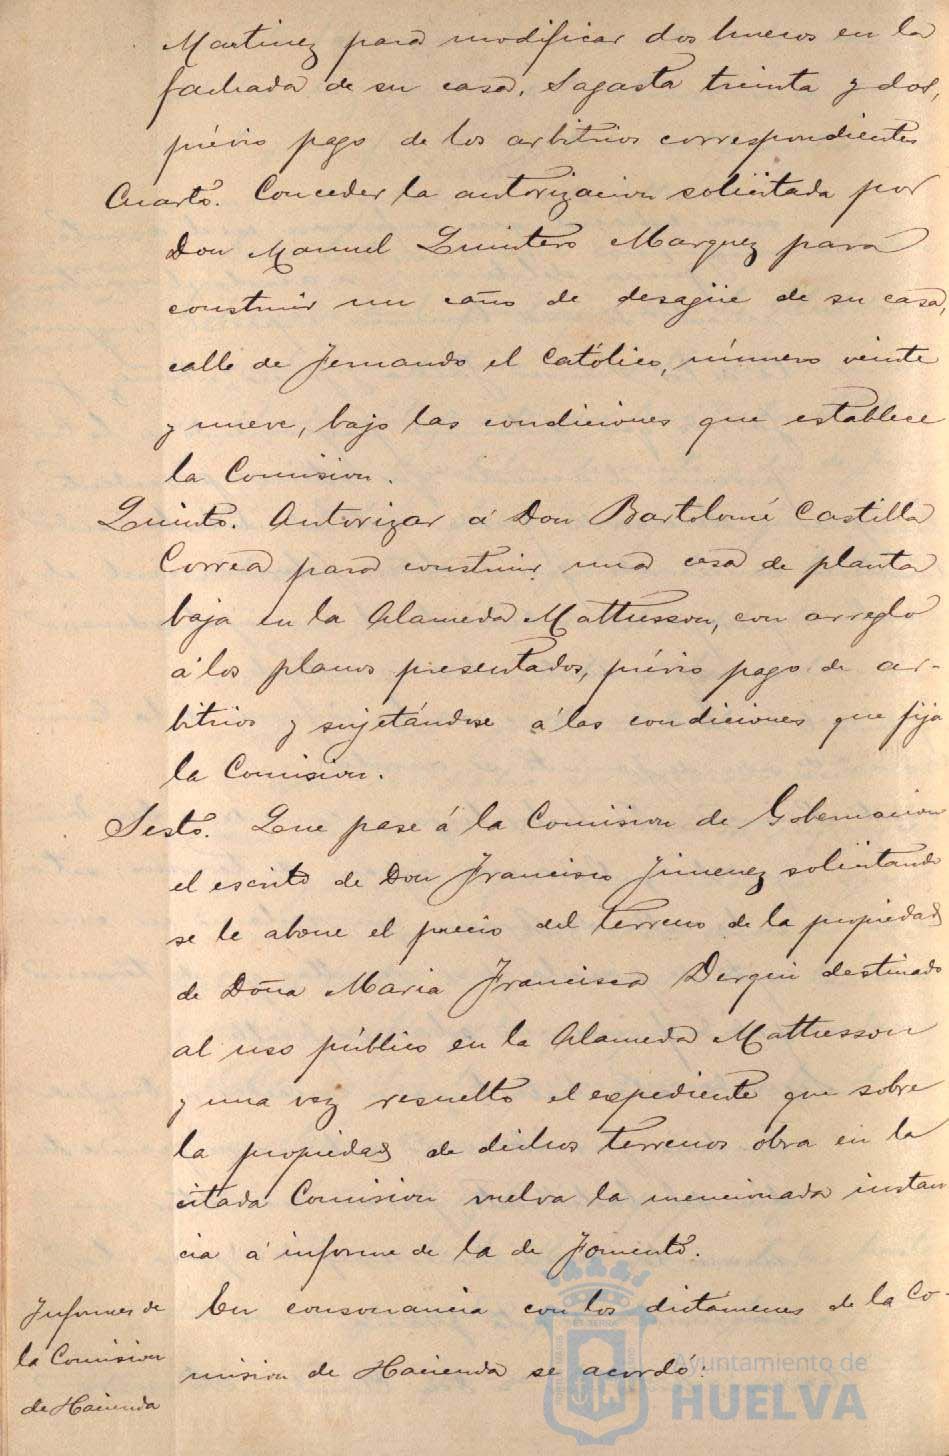 Martinez para modificar dos huecos en la
fachada de su casa, Sagasta treinta y dos,
prévio pago de los arbitrios correspondientes
Cuarto. Conceder la autorizacion solicitada por
Don Manuel Quintero Marquez para
construir un caño de desagüe de su casa,
calle de Fernando el Católico, número veinte
y nueve, bajo las condiciones que establece
la Comision.
Quinto. Autorizar á Don Bartolomé Castilla
Correa para construir una casa de planta
baja en la Alameda Mattesson, con arreglo
á los planos presentados, prévio pago de ar-
bitrios y sujetándose á las condiciones que fija
la Comision.
Sesto. Que pase á la Comision de Gobernacion
el escrito de Don Francisco Jimenez solicitando
se le abone el precio del terreno de la propiedad
de Doña Maria Francisca Dergui destinado
al uso público en la Alameda Mattesson
y una vez resuelto el expediente que sobre
la propiedad de dichos terrenos obra en la
citada Comision vuelva la mencionada instan
cia á informe de la de Fomento.
Informes de
la Comision
de Hacienda
En consonancia con los dictámenes de la Co-
mision de Hacienda se acordó:
Ayuntamiento de
HUELVA